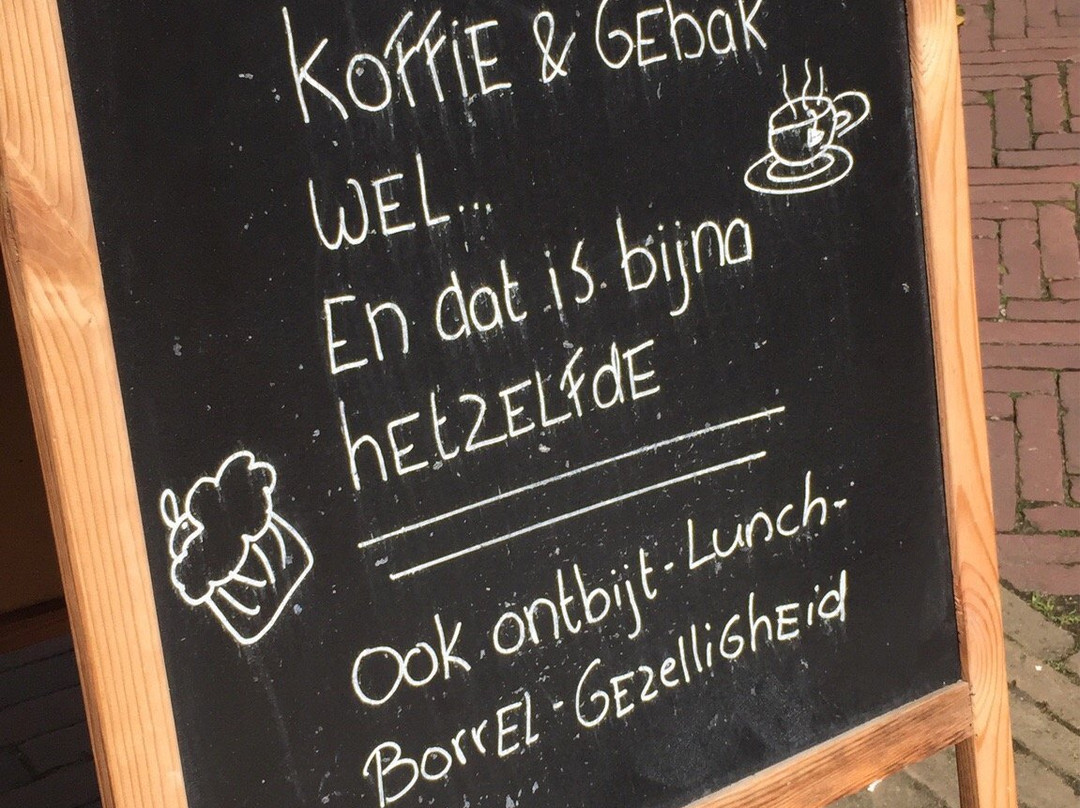 KOFFIE & GEbAK
WEL...
En dat is bijna
hEtZELFdE
Ook ontbijt - Lunch -
BorrEl - GEzelliGhEid